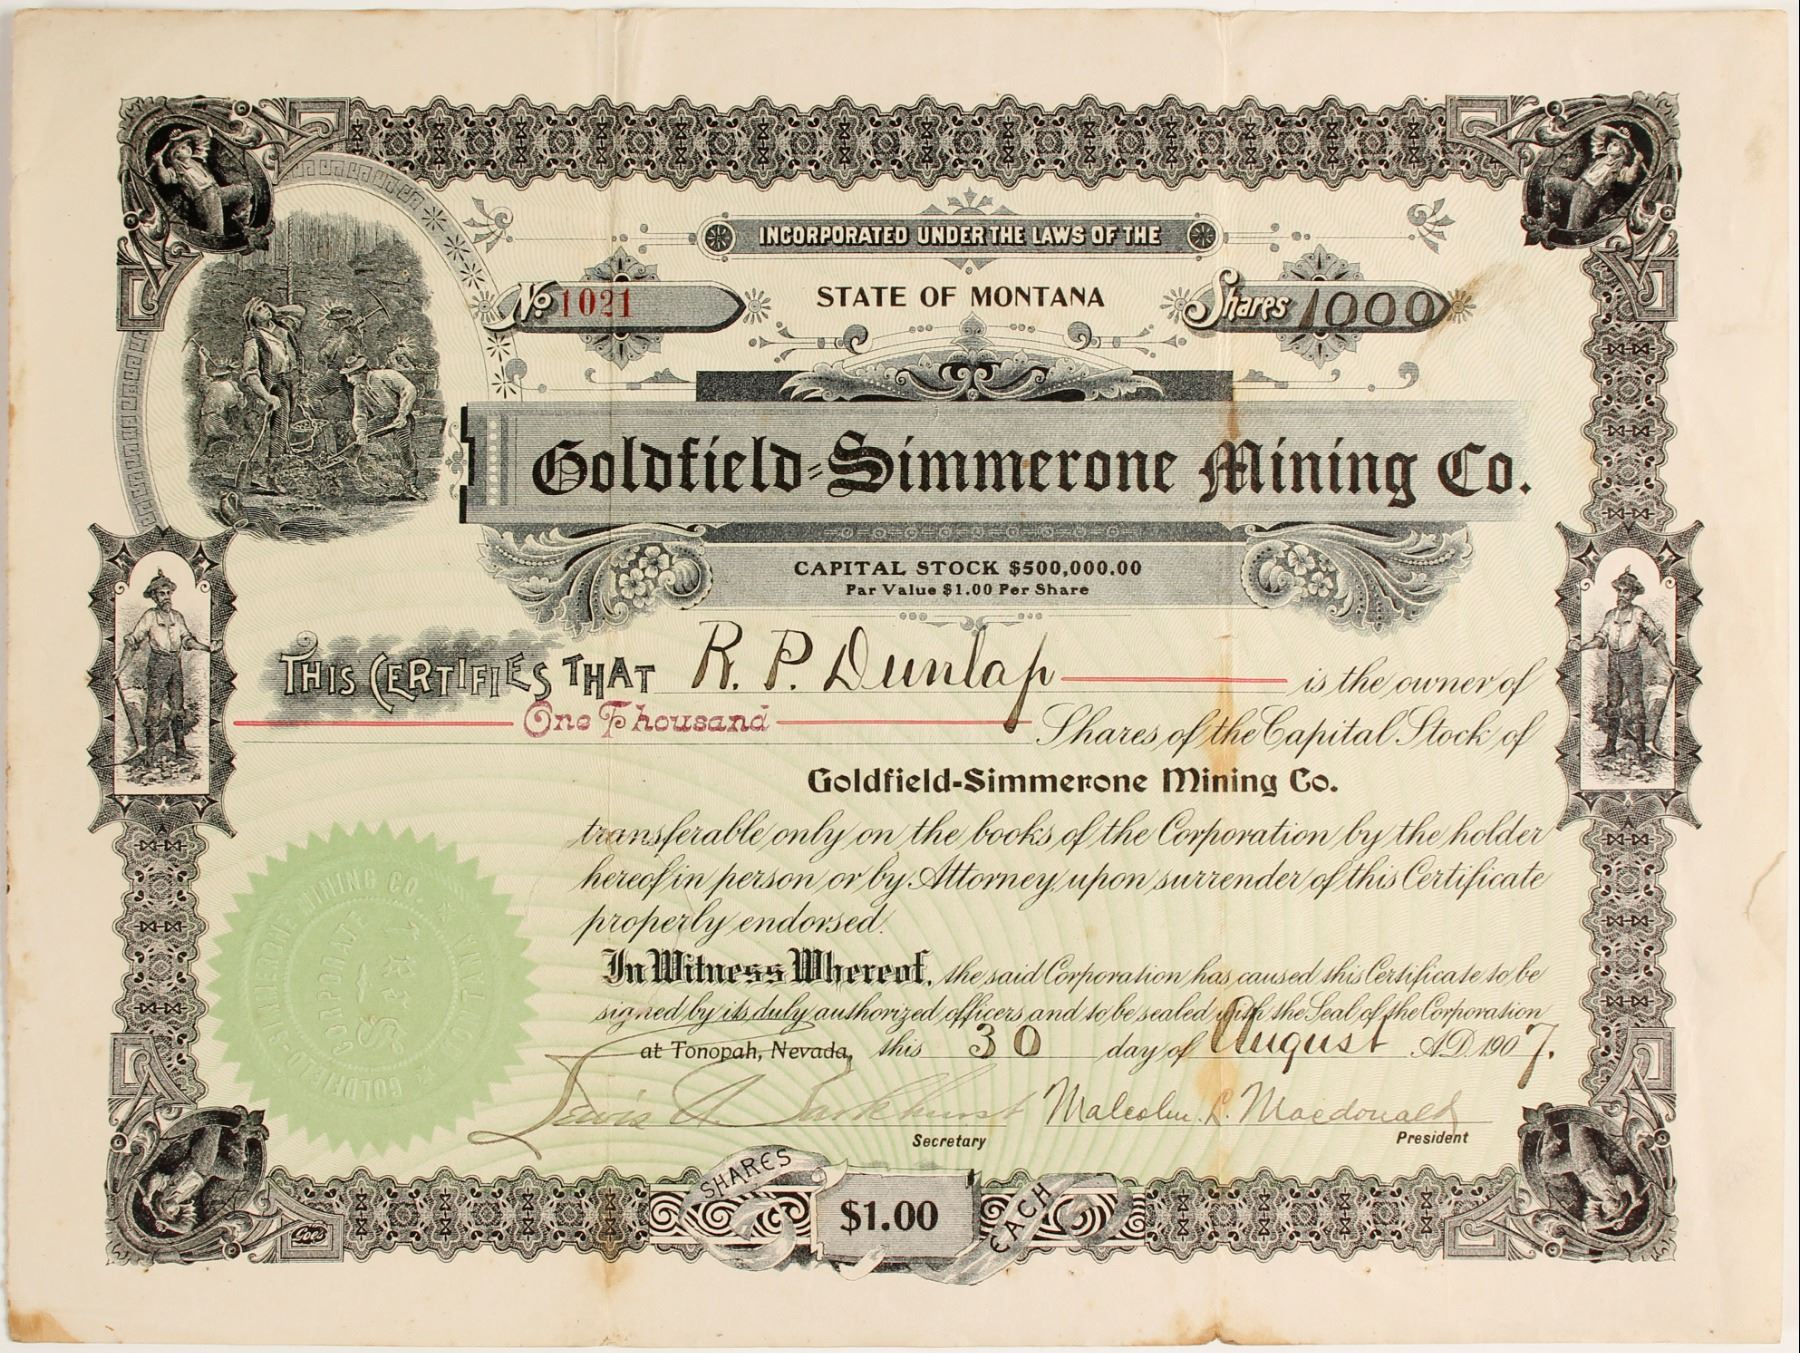 INCORPORATED UNDER THE LAWS OF THE
No 1021
STATE OF MONTANA
Shares 1000
Goldfield-Simmerone Mining Co.
CAPITAL STOCK $500,000.00
Par Value $1.00 Per Share
THIS CERTIFIES THAT R. P. Dunlap is the owner of
One Thousand Shares of the Capital Stock of
Goldfield-Simmerone Mining Co.
transferable only on the books of the Corporation by the holder
hereof in person or by Attorney, upon surrender of this Certificate
properly endorsed.
In Witness Whereof, the said Corporation has caused this Certificate to be
signed by its duly authorized officers and to be sealed with the Seal of the Corporation
at Tonopah, Nevada, this 30 day of August A.D. 1907.
Lewis A. Parkhurst Malcolm L. Macdonald
Secretary
President
MINING CO.
CORPORATE
GOLDFIELD
SHARES $1.00 EACH
Goes